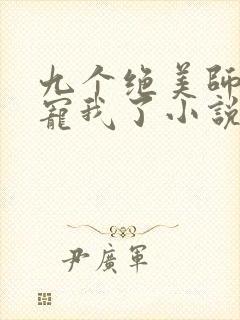 九个绝美師
寵我了小説
尹廣軍